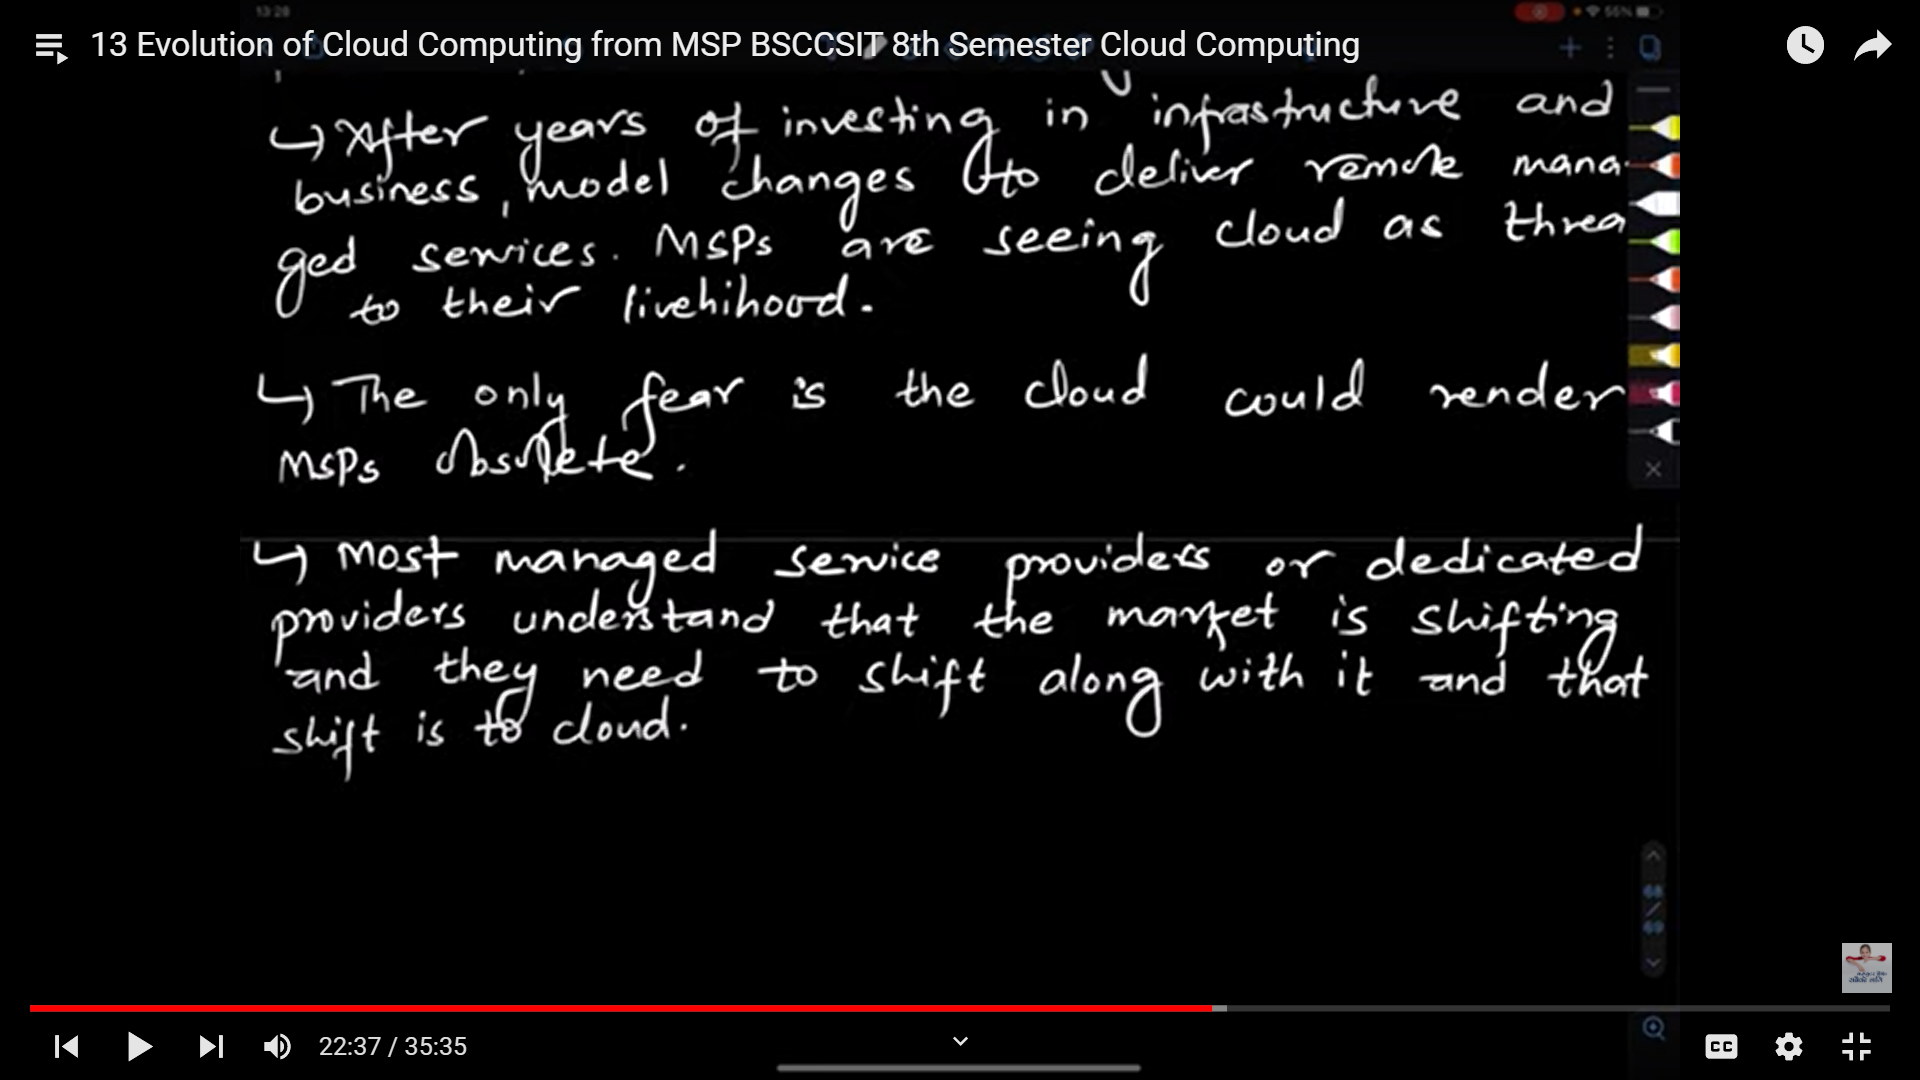 13:28
55%
13 Evolution of Cloud Computing from MSP BSCCSIT 8th Semester Cloud Computing
↳ After years of investing in infrastructure and
business, model changes to deliver remote mana
ged services. MSPs are seeing cloud as threa
to their livehihood.
↳ The only fear is the cloud could render
MSPs obsolete.
↳ Most managed service providers or dedicated
providers understand that the market is shifting
and they need to shift along with it and that
shift is to cloud.
68
/
69
22:37 / 35:35
CC